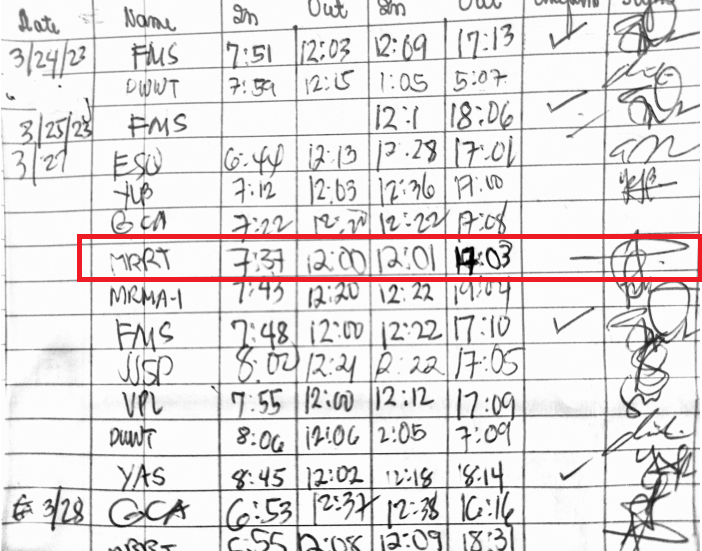 Date Name In Out In Out
3/24/23 FMS 7:51 12:03 12:09 17:13
DWWT 7:59 12:15 1:05 5:07
3/25/23 FMS 12:1 18:06
3/27 ESW 6:44 12:13 12:28 17:01
7:12 12:03 12:36 17:00
GCA 7:22 12:22 17:08
MRRT 7:37 12:00 12:01 17:03
MRMA-1 7:43 12:20 12:22 19:04
FMS 7:48 12:00 12:22 17:10
JJSP 8:02 12:21 12:22 17:05
VPL 7:55 12:00 12:12 17:09
DWWT 8:06 12:06 2:05 7:09
YAS 8:45 12:02 12:18 18:14
3/28 GCA 6:53 12:37 12:38 16:16
MRRT 6:55 12:08 12:09 18:31